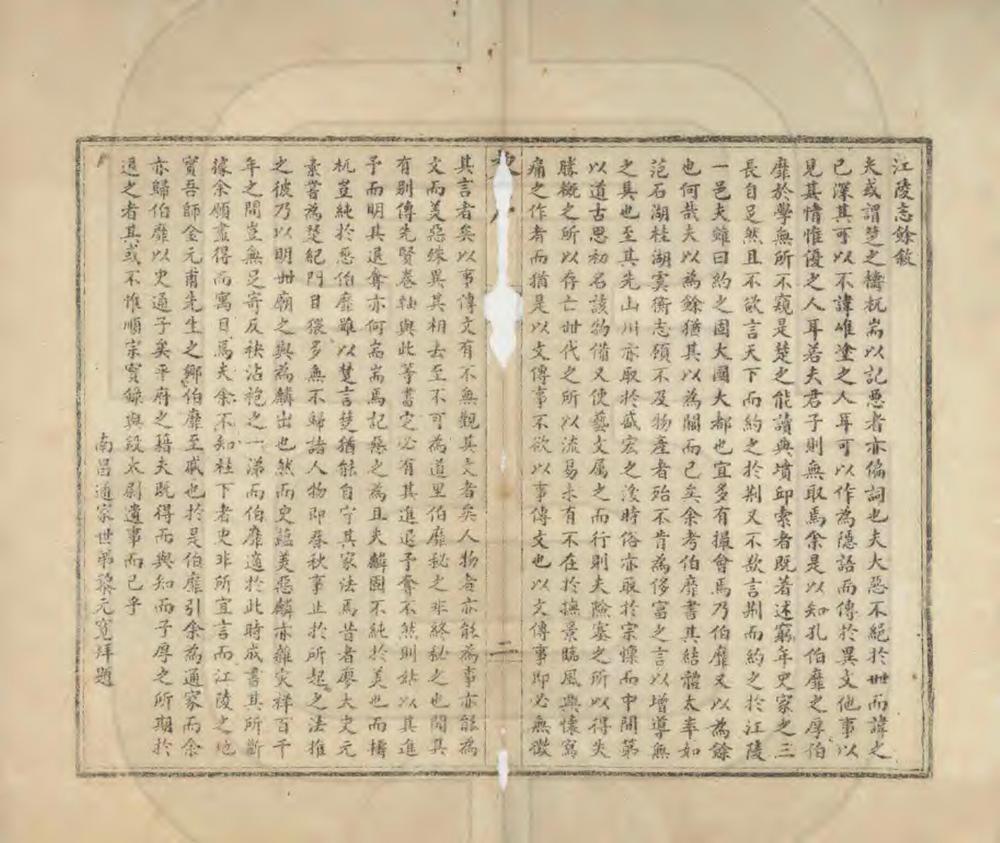 江陵志餘敘
夫或謂楚之檮杌耑以記惡者亦偏詞也夫大惡不絕於世而諱之
已深其可以不諱唯塗之人耳可以作為隱語而傳於異文他事以
見其情惟優之人耳若夫君子則無取焉余是以知孔伯靡之厚伯
靡於學無所不窺是楚之能讀典墳邱索者既著述窮年史家之三
長自足然且不欲言天下而約之於荆又不欲言荆而約之於江陵
一邑夫雖曰約之固大國大都也宜多有撮會焉乃伯靡又以為餘
也何哉夫以為餘猶其以為關而已矣余考伯靡書其結體太率如
范石湖桂湖虞衡志顧不及物產者殆不肯為侈富之言以增導無
之具也至其先山川亦取於盛宏之後時俗亦取於宗懍而中間第
以道古思初名該物借又使藝文属之而行則夫險塞之所以得失
勝概之所以存亡世代之所以流易未有不在於撫景臨風興懷寫
痛之作者而猶是以文傳事不欲以事傳文也以文傳事即必無徵
二
其言者矣以事傳文有不無觀其文者矣人物者亦能為事亦能為
文而美惡殊異其相去至不可為道里伯靡秘之非終秘之也聞其
有別傳先賢卷軸與此等書定必有其進退予奪不然則姑以其進
予而明其退奪亦何耑耑焉記惡之為且夫麟固不純於美也而檮
杌豈純於惡伯靡雖以楚言楚猶能自守其家法焉昔者廖大史元
素嘗為楚紀門目猥多無不歸諸人物即春秋事止於所起之法推
之彼乃以明世廟之興為麟出也然而史諡美惡麟亦雜灾祥百千
年之間豈無足寄反袂沾袍之一涕而伯靡適於此時成書其所斷
據余願盡得而寓目焉夫余不知柱下者史非所宜言而江陵之地
實吾師金元甫先生之鄉伯靡至戚也於是伯靡引余為通家而余
亦歸伯靡以史通子矣平府之藉夫既得而與知而子厚之所期於
退之者其或不惟順宗實錄與段太尉遺事而已乎
南昌通家世弟黎元寬拜題